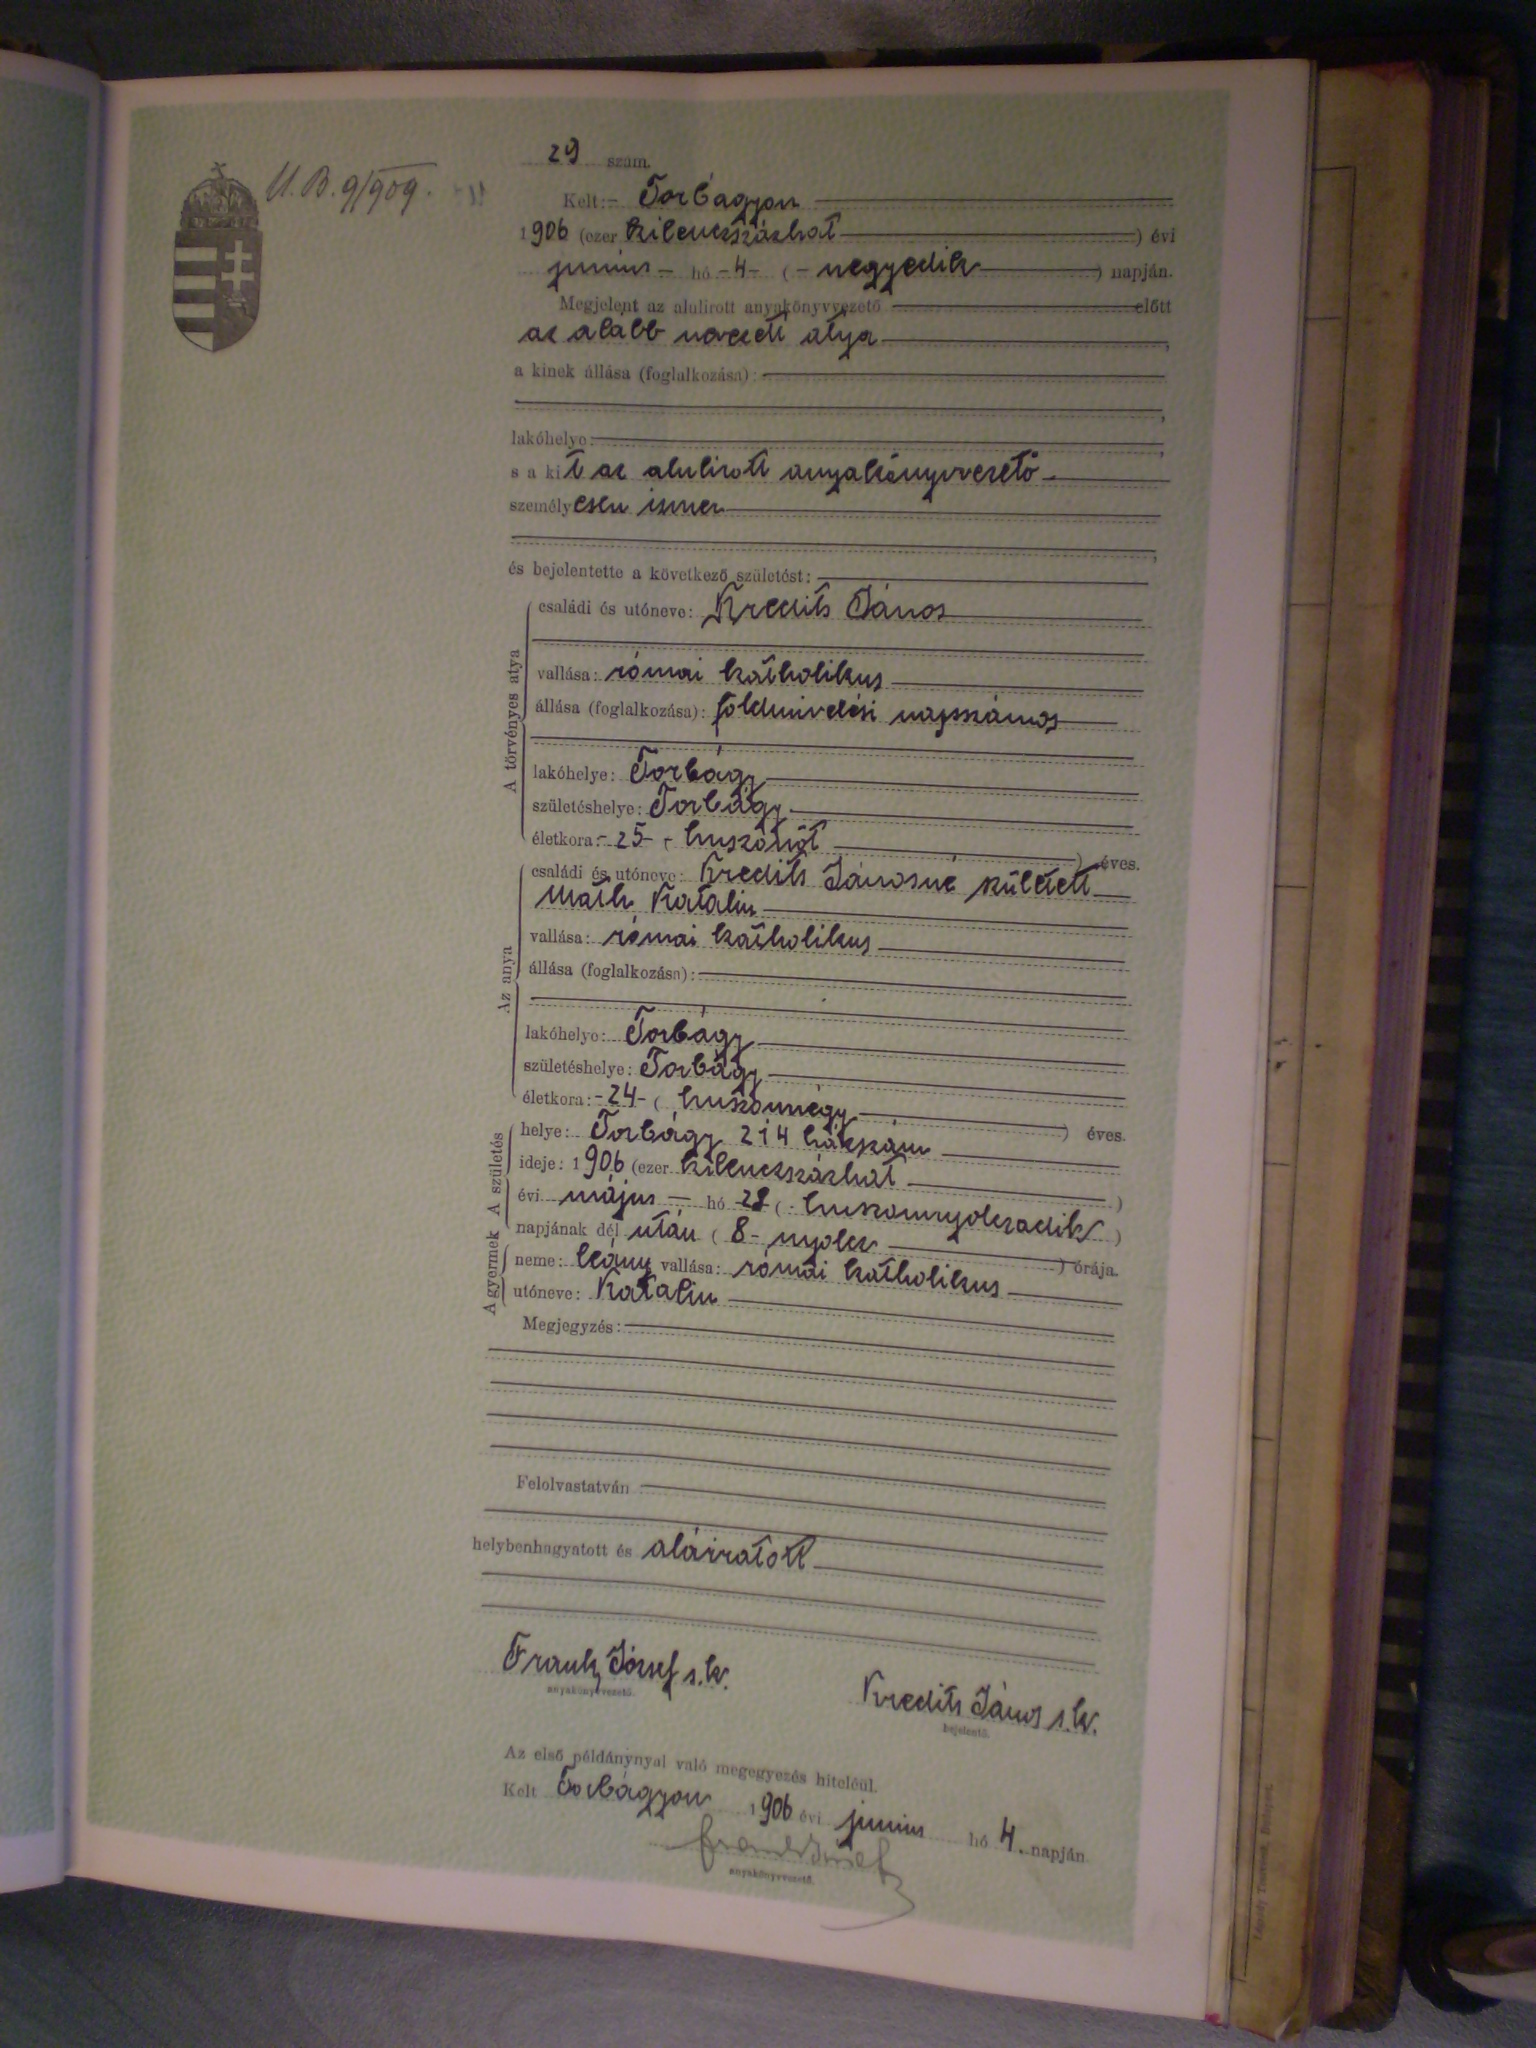 U. B. 9/909.
29 szám.
Kelt: - Torbágyon
1906 (ezer kilenczszázhat) évi
junius - hó - 4 - ( - negyedik ) napján.
Megjelent az alulirott anyakönyvvezető előtt
az alább nevezett atya ,
a kinek állása (foglalkozása):
lakóhelye:
s a kit az alulirott anyakönyvvezető -
személyesen ismer
és bejelentette a következő születést:
A törvényes atya
családi és utóneve: Kredits János
vallása: római katholikus
állása (foglalkozása): földmivelési napszámos
lakóhelye: Torbágy
születéshelye: Torbágy
életkora: - 25 - ( huszonöt ) éves.
Az anya
családi és utóneve: Kredits Jánosné született
Math Katalin
vallása: római katholikus
állása (foglalkozása):
lakóhelye: Torbágy
születéshelye: Torbágy
életkora: - 24 - ( huszonnégy ) éves.
A születés
helye: Torbágy 214 házszám
ideje: 1906 (ezer kilenczszázhat )
évi május - hó 28 ( - huszonnyolczadik )
napjának dél után ( 8 - nyolcz ) órája.
A gyermek
neme: leány vallása: római katholikus
utóneve: Katalin
Megjegyzés:
Felolvastatván
helybenhagyatott és aláiratott
Frank József s. k.
anyakönyvvezető.
Kredits János s. k.
bejelentő.
Az első példánynyal való megegyezés hiteléül.
Kelt Torbágyon 1906 évi junius hó 4. napján
Frank József
anyakönyvvezető.